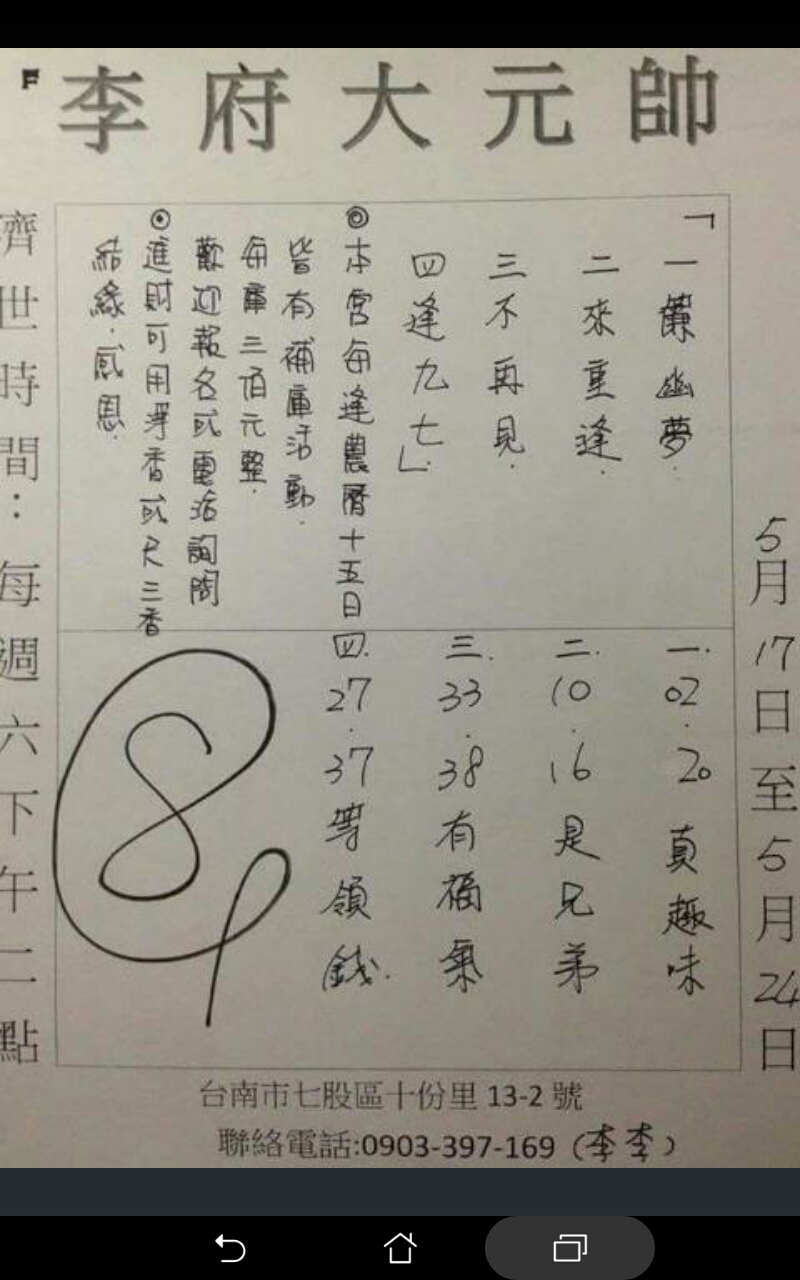 李府大元帥
5月17日至5月24日
「一簾幽夢.
二來重逢.
三不再見.
四逢九七」.
◎本宮每逢農曆十五日
皆有補庫活動.
每庫三佰元整.
歡迎報名或電話詢問
⊙進財可用淨香或尺三香
結緣.感恩.
一.02.20真趣味
二.10.16是兄弟
三.33.38有福氣
四.27.37等領錢.
濟世時間：每週六下午二點
台南市七股區十份里 13-2 號
聯絡電話:0903-397-169（李李）